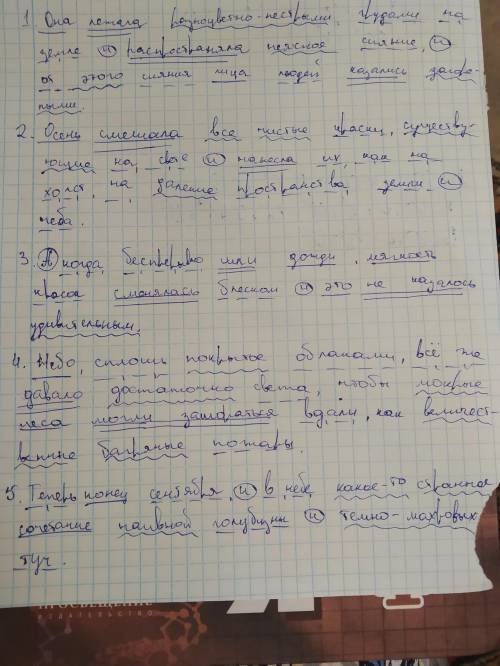 1. Она лежала разноцветно-пестрыми грудами на
земле и распространяла неясное сияние, и
от этого сияния лица людей казались загоре-
лыми.
2. Осень смешала все чистые краски, существу-
ющие на свете и нанесла их, как на
холст, на далекие пространства земли и
неба.
3. А когда беспрерывно шли дожди, мягкость
красок сменялась блеском и это не казалось
удивительным.
4. Небо, сплошь покрытое облаками, всё же
давало достаточно света, чтобы мокрые
леса могли загораться вдали, как величест-
венные багряные пожары.
5. Теперь конец сентября, и в небе какое-то странное
сочетание наивной голубизны и темно-махровых
туч.
ПРОСВЕЩЕНИЕ
ИЗДАТЕЛЬСТВО